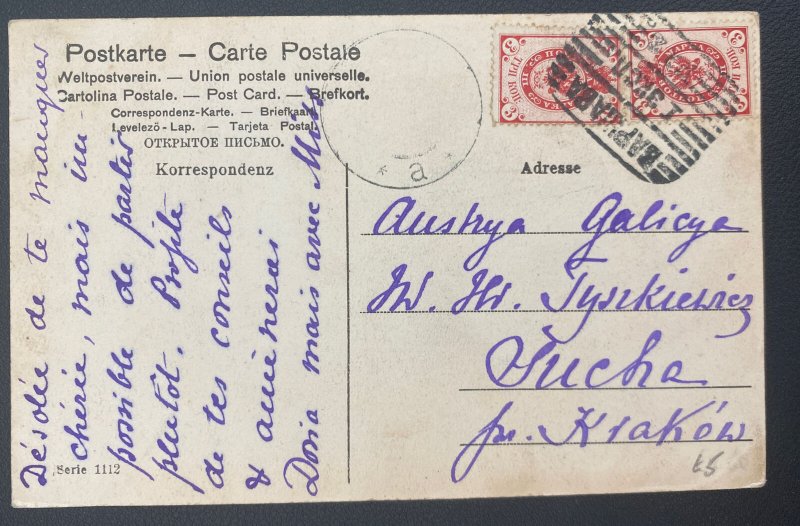 Postkarte – Carte Postale
Weltpostverein. — Union postale universelle.
Cartolina Postale. — Post Card. — Brefkort.
Correspondenz-Karte. — Briefkaart
Levelező-Lap. — Tarjeta Postal.
ОТКРЫТОЕ ПИСЬМО.
Korrespondenz
Désolée de te manquer
chérie, mais im-
possible de partir
plutôt. Profite
de tes conseils
& amènerai
Dora mais avec
Serie 1112
* a *
3 3
ТРИ КОП
МАРКА
3 3
МАРКА
ВАРШАВА
Adresse
Austrya Galicya
JW. Hr. Tyszkiewicz
Sucha
pr. Kraków
£5